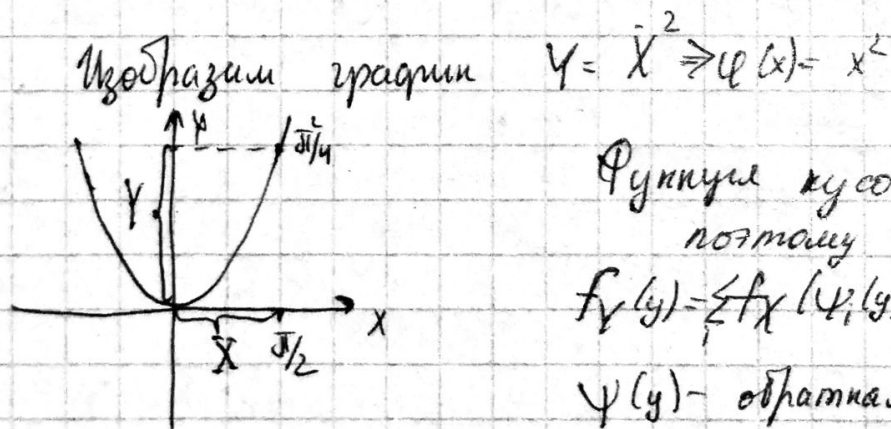 Изобразим график Y = X² ⇒ φ(x) = x²
Y π²/4
Y
Функция кусо
поэтому
f_Y(y) = Σ_i f_X(ψ_i(y
X π/2 x
ψ(y) - обратная